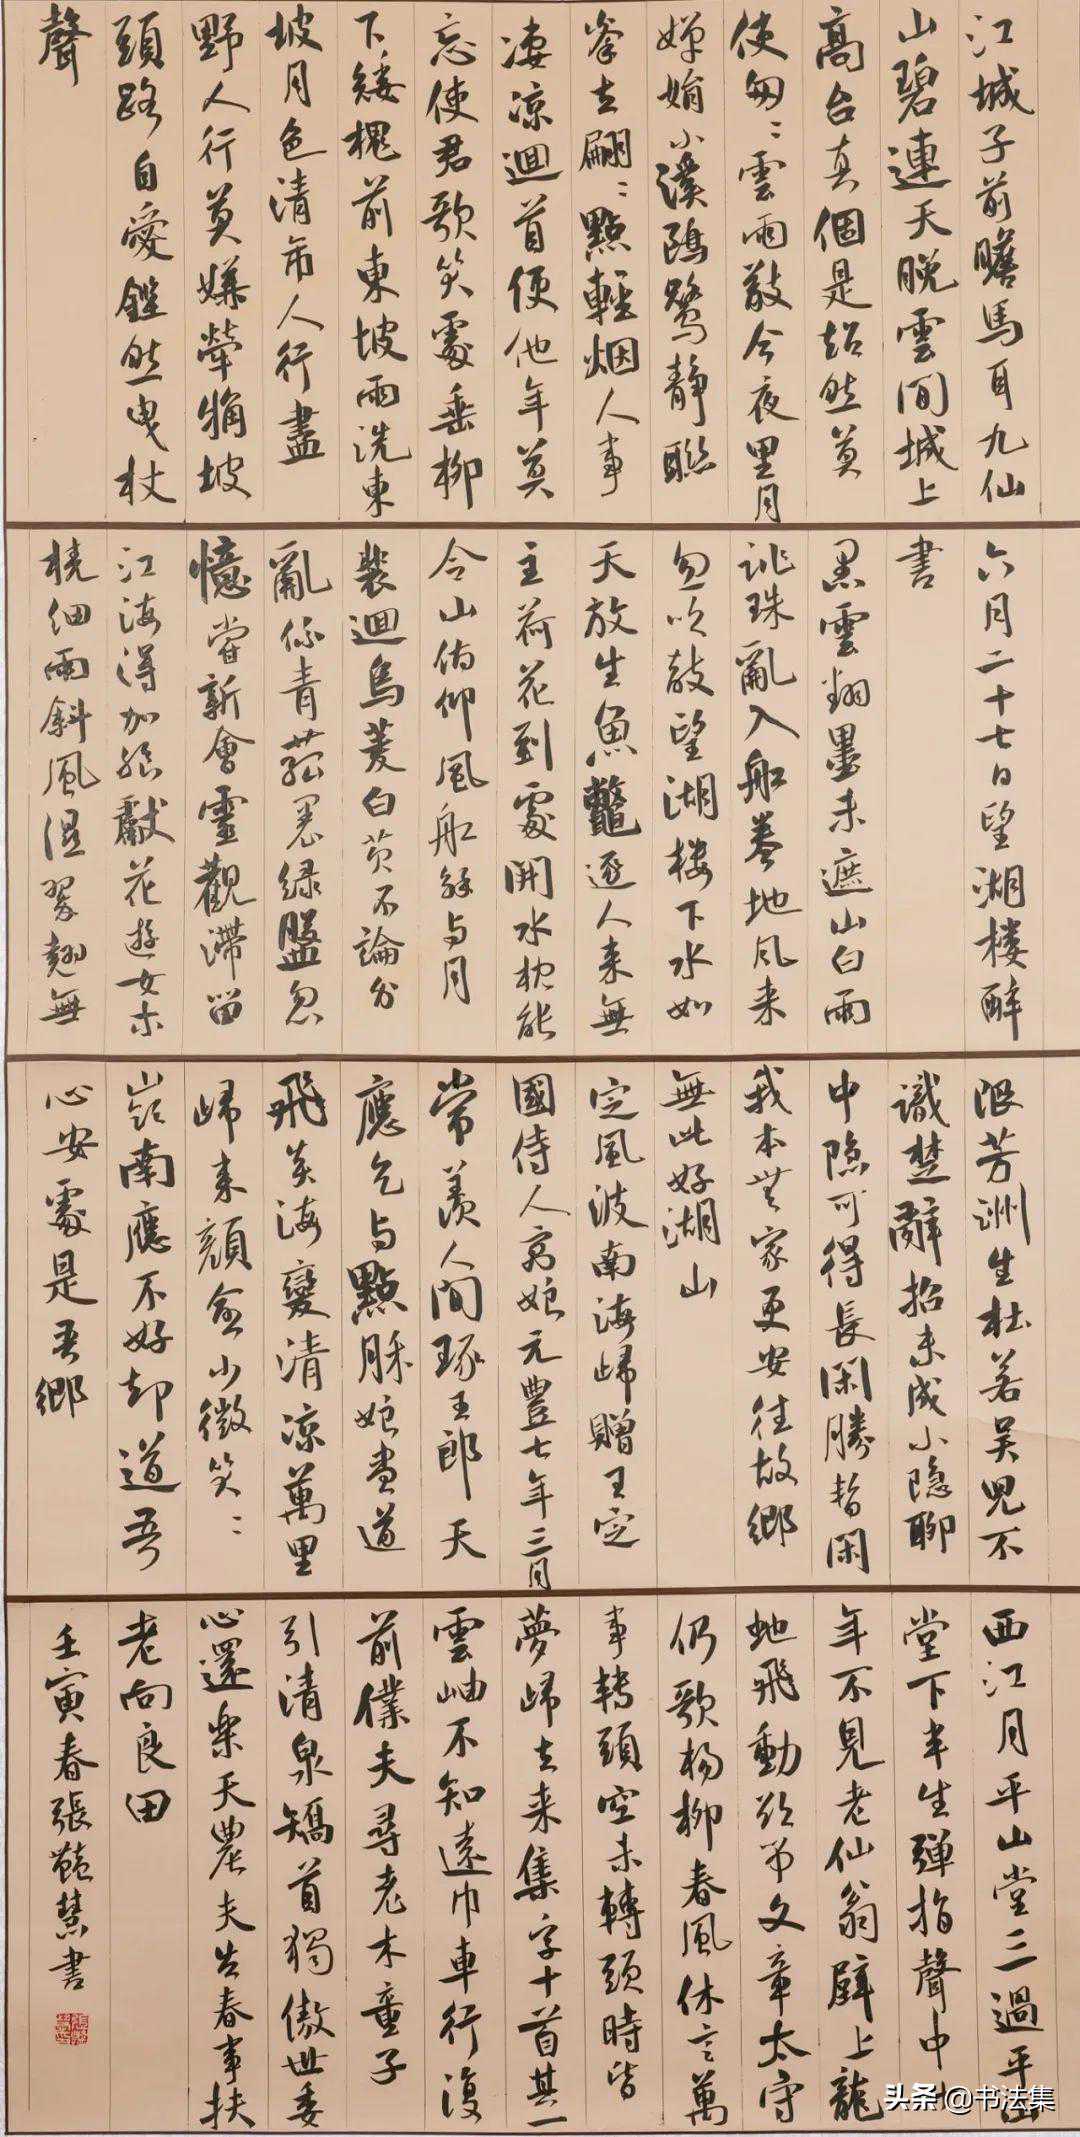 江城子前瞻馬耳九仙
山碧連天晚雲間城上
高台真個是超然莫
使匆〻雲雨散今夜里月
嬋娟小溪鷗鷺靜聯
拳去翩〻點輕烟人事
凄凉迴首便他年莫
忘使君歌笑處垂柳
下矮槐前東坡雨洗東
坡月色清市人行盡
野人行莫嫌犖确坡
頭路自愛鏗然曳杖
聲
六月二十七日望湖楼醉
書
黑雲翻墨未遮山白雨
跳珠亂入船卷地风来
忽吹散望湖楼下水如
天放生魚鱉逐人来無
主荷花到處開水枕能
令山俯仰風船解与月
裴迴烏菱白芡不論
亂係青菰裹绿盤忽
憶嘗新會靈觀滯留
江海得加餐獻花游女木
桡细雨斜風湿翠翹無
限芳洲生杜若吴兒不
識楚辭招未成小隐聊
中隐可得長閑勝暫閑
我本無家更安往故鄉
無此好湖山
定風波南海歸贈王定
國侍人寓娘元豊七年三月
常羡人間琢玉郎天
應乞与點酥娘盡道
飛炎海變清凉萬里
歸来顏愈少微笑〻
嶺南應不好却道吾
心安處是吾鄉
西江月平山堂三過平山
堂下半生弹指聲中十
年不見老仙翁壁上龍
蛇飛動欲吊文章太守
仍歌楊柳春風休言萬
事轉頭空未轉頭時皆
夢歸去来集字十首其一
雲岫不知遠巾車行復
前僕夫尋老木童子
引清泉矯首獨傲世委
心還樂天農夫告春事扶
老向良田
壬寅春張藝慧書
头条@书法集